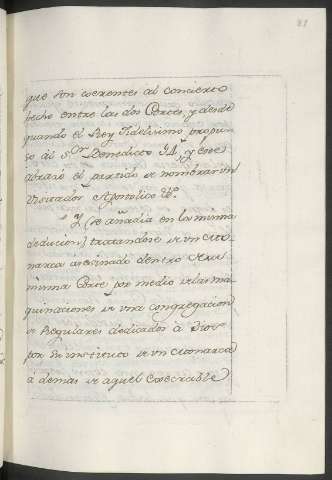 81
que son coerentes al concierto
hecho entre las dos Cortes, y desde
quando el Rey Fidelisimo propu-
so al Sor. Benedicto 14. y este
abrazó el partido de nombrar un
Visitador Apostolico &a.
" Y (se añadia en la misma
deducion) tratandose de un Mo-
narca asesinado dentro de su
misma Corte por medio de las ma-
quinaciones de una congregacion
de Regulares dedicados à Dios
por su instituto de un Monarca
á demas de aquel execrable